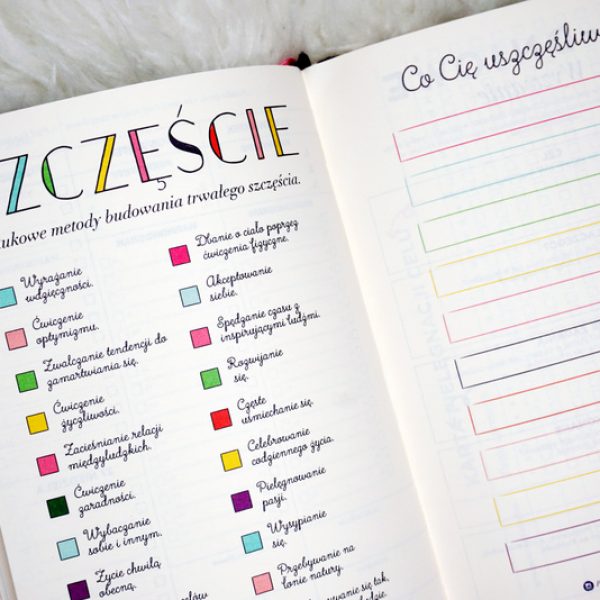 ZCZĘŚCIE
ukowe metody budowania trwałego szczęścia.
Wyrażanie
wdzięczności.
Ćwiczenie
optymizmu.
Zwalczanie tendencji do
zamartwiania się.
Ćwiczenie
życzliwości.
Zacieśnianie relacji
międzyludzkich.
Ćwiczenie
zaradności.
Wybaczanie
sobie i innym.
Życie chwilą
obecną.
Dbanie o ciało poprzez
ćwiczenia fizyczne.
Akceptowanie
siebie.
Spędzanie czasu z
inspirującymi ludźmi.
Rozwijanie
się.
Częste
uśmiechanie się.
Celebrowanie
codziennego życia.
Pielęgnowanie
pasji.
Wysypianie
się.
Przebywanie na
łonie natury.
Co Cię uszczęśliw